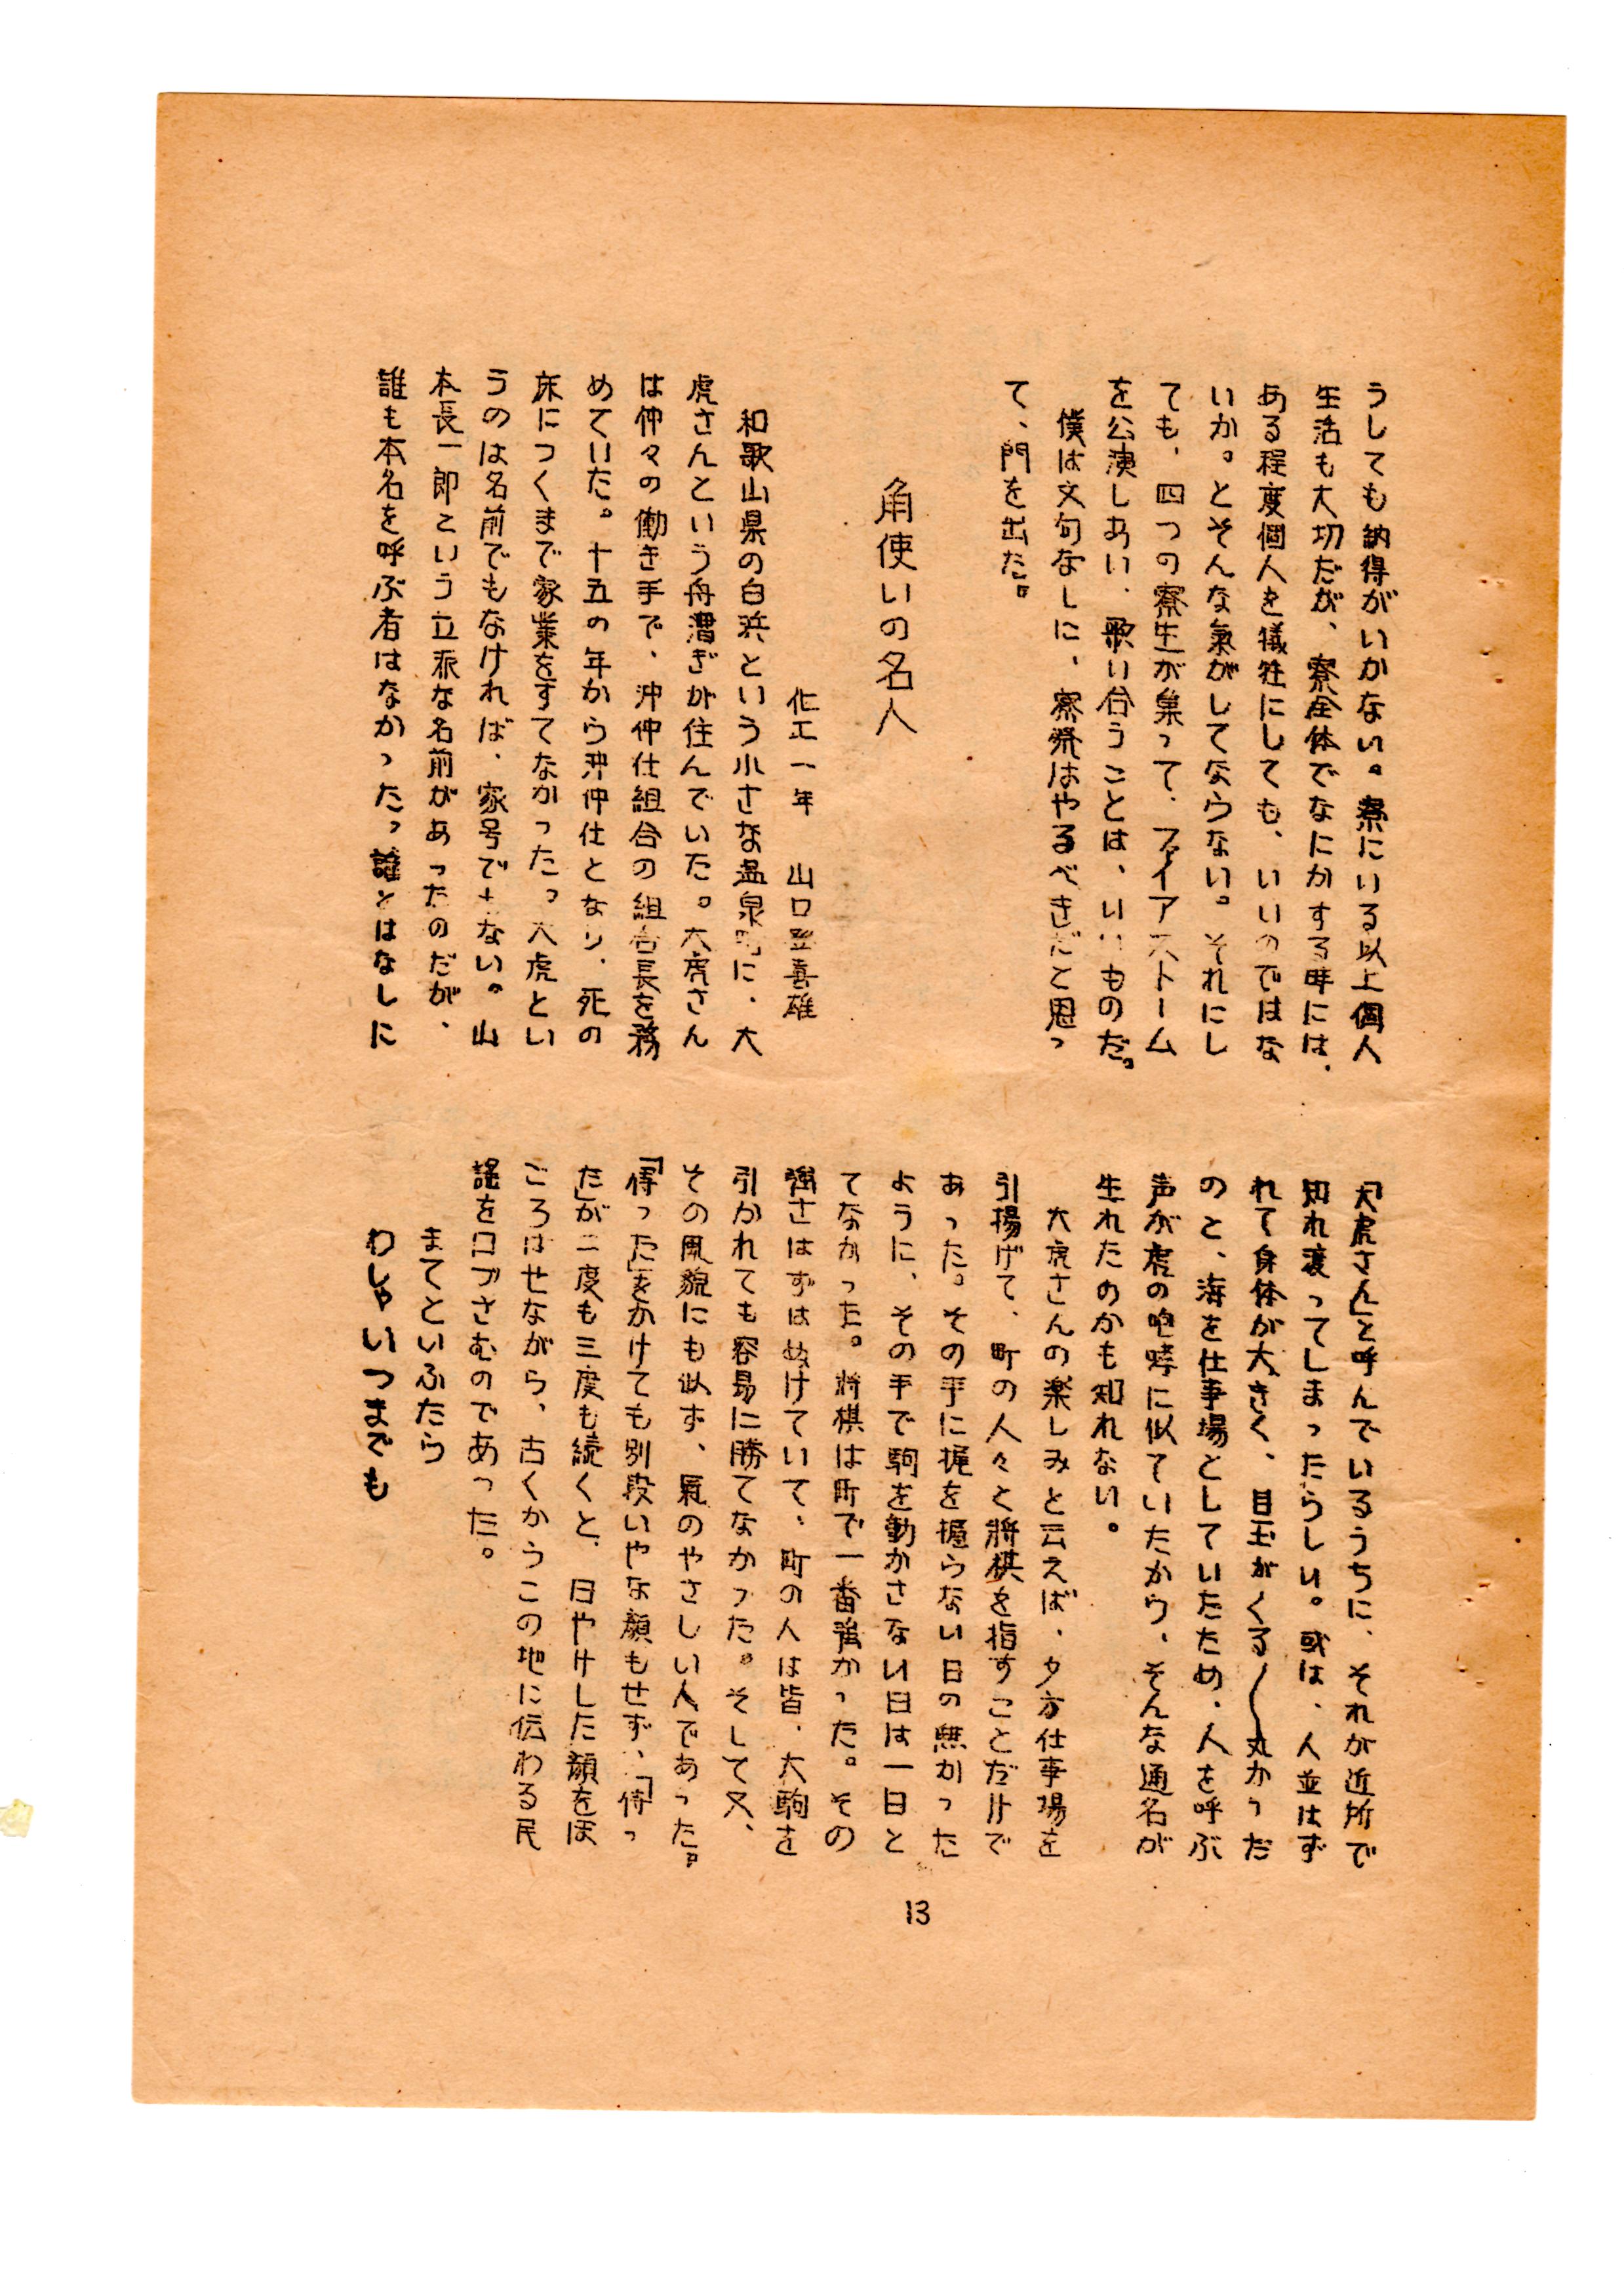 うしても納得がいかない。寮にいる以上個人
生活も大切だが、寮全体でなにかする時には、
ある程度個人を犠牲にしても、いいのではな
いか。とそんな氣がしてならない。それにし
ても、四つの寮生が集って、ファイアストーム
を公演しあい、歌い合うことは、いいものだ。
僕は文句なしに、寮祭はやるべきだと思っ
て、門を出た。
角使いの名人
化工一年 山口登喜雄
和歌山県の白浜という小さな温泉町に、大
虎さんという舟漕ぎが住んでいた。大虎さん
は仲々の働き手で、沖仲仕組合の組合長を務
めていた。十五の年から沖仲仕となり、死の
床につくまで家業をすてなかった。大虎とい
うのは名前でもなければ、家号でもない。山
本長一郎という立派な名前があったのだが、
誰も本名を呼ぶ者はなかった。誰とはなしに
「大虎さん」と呼んでいるうちに、それが近所で
知れ渡ってしまったらしい。或は、人並はず
れて身体が大きく、目玉がくる〱丸かった
のと、海を仕事場としていたため、人を呼ぶ
声が虎の咆哮に似ていたから、そんな通名が
生れたのかも知れない。
大虎さんの楽しみと云えば、夕方仕事場を
引揚げて、町の人々と将棋を指すことだけで
あった。その手に梶を握らない日の無かった
ように、その手で駒を動かさない日は一日と
てなかった。将棋は町で一番強かった。その
強さはずばぬけていて、町の人は皆、大駒を
引かれても容易に勝てなかった。そして又、
その風貌にも似ず、氣のやさしい人であった。
「待った」をかけても別段いやな顔もせず、「待っ
た」が二度も三度も続くと、日やけした顔をほ
ころばせながら、古くからこの地に伝わる民
謡を口づさむのであった。
まてといふたら
わしゃいつまでも
13